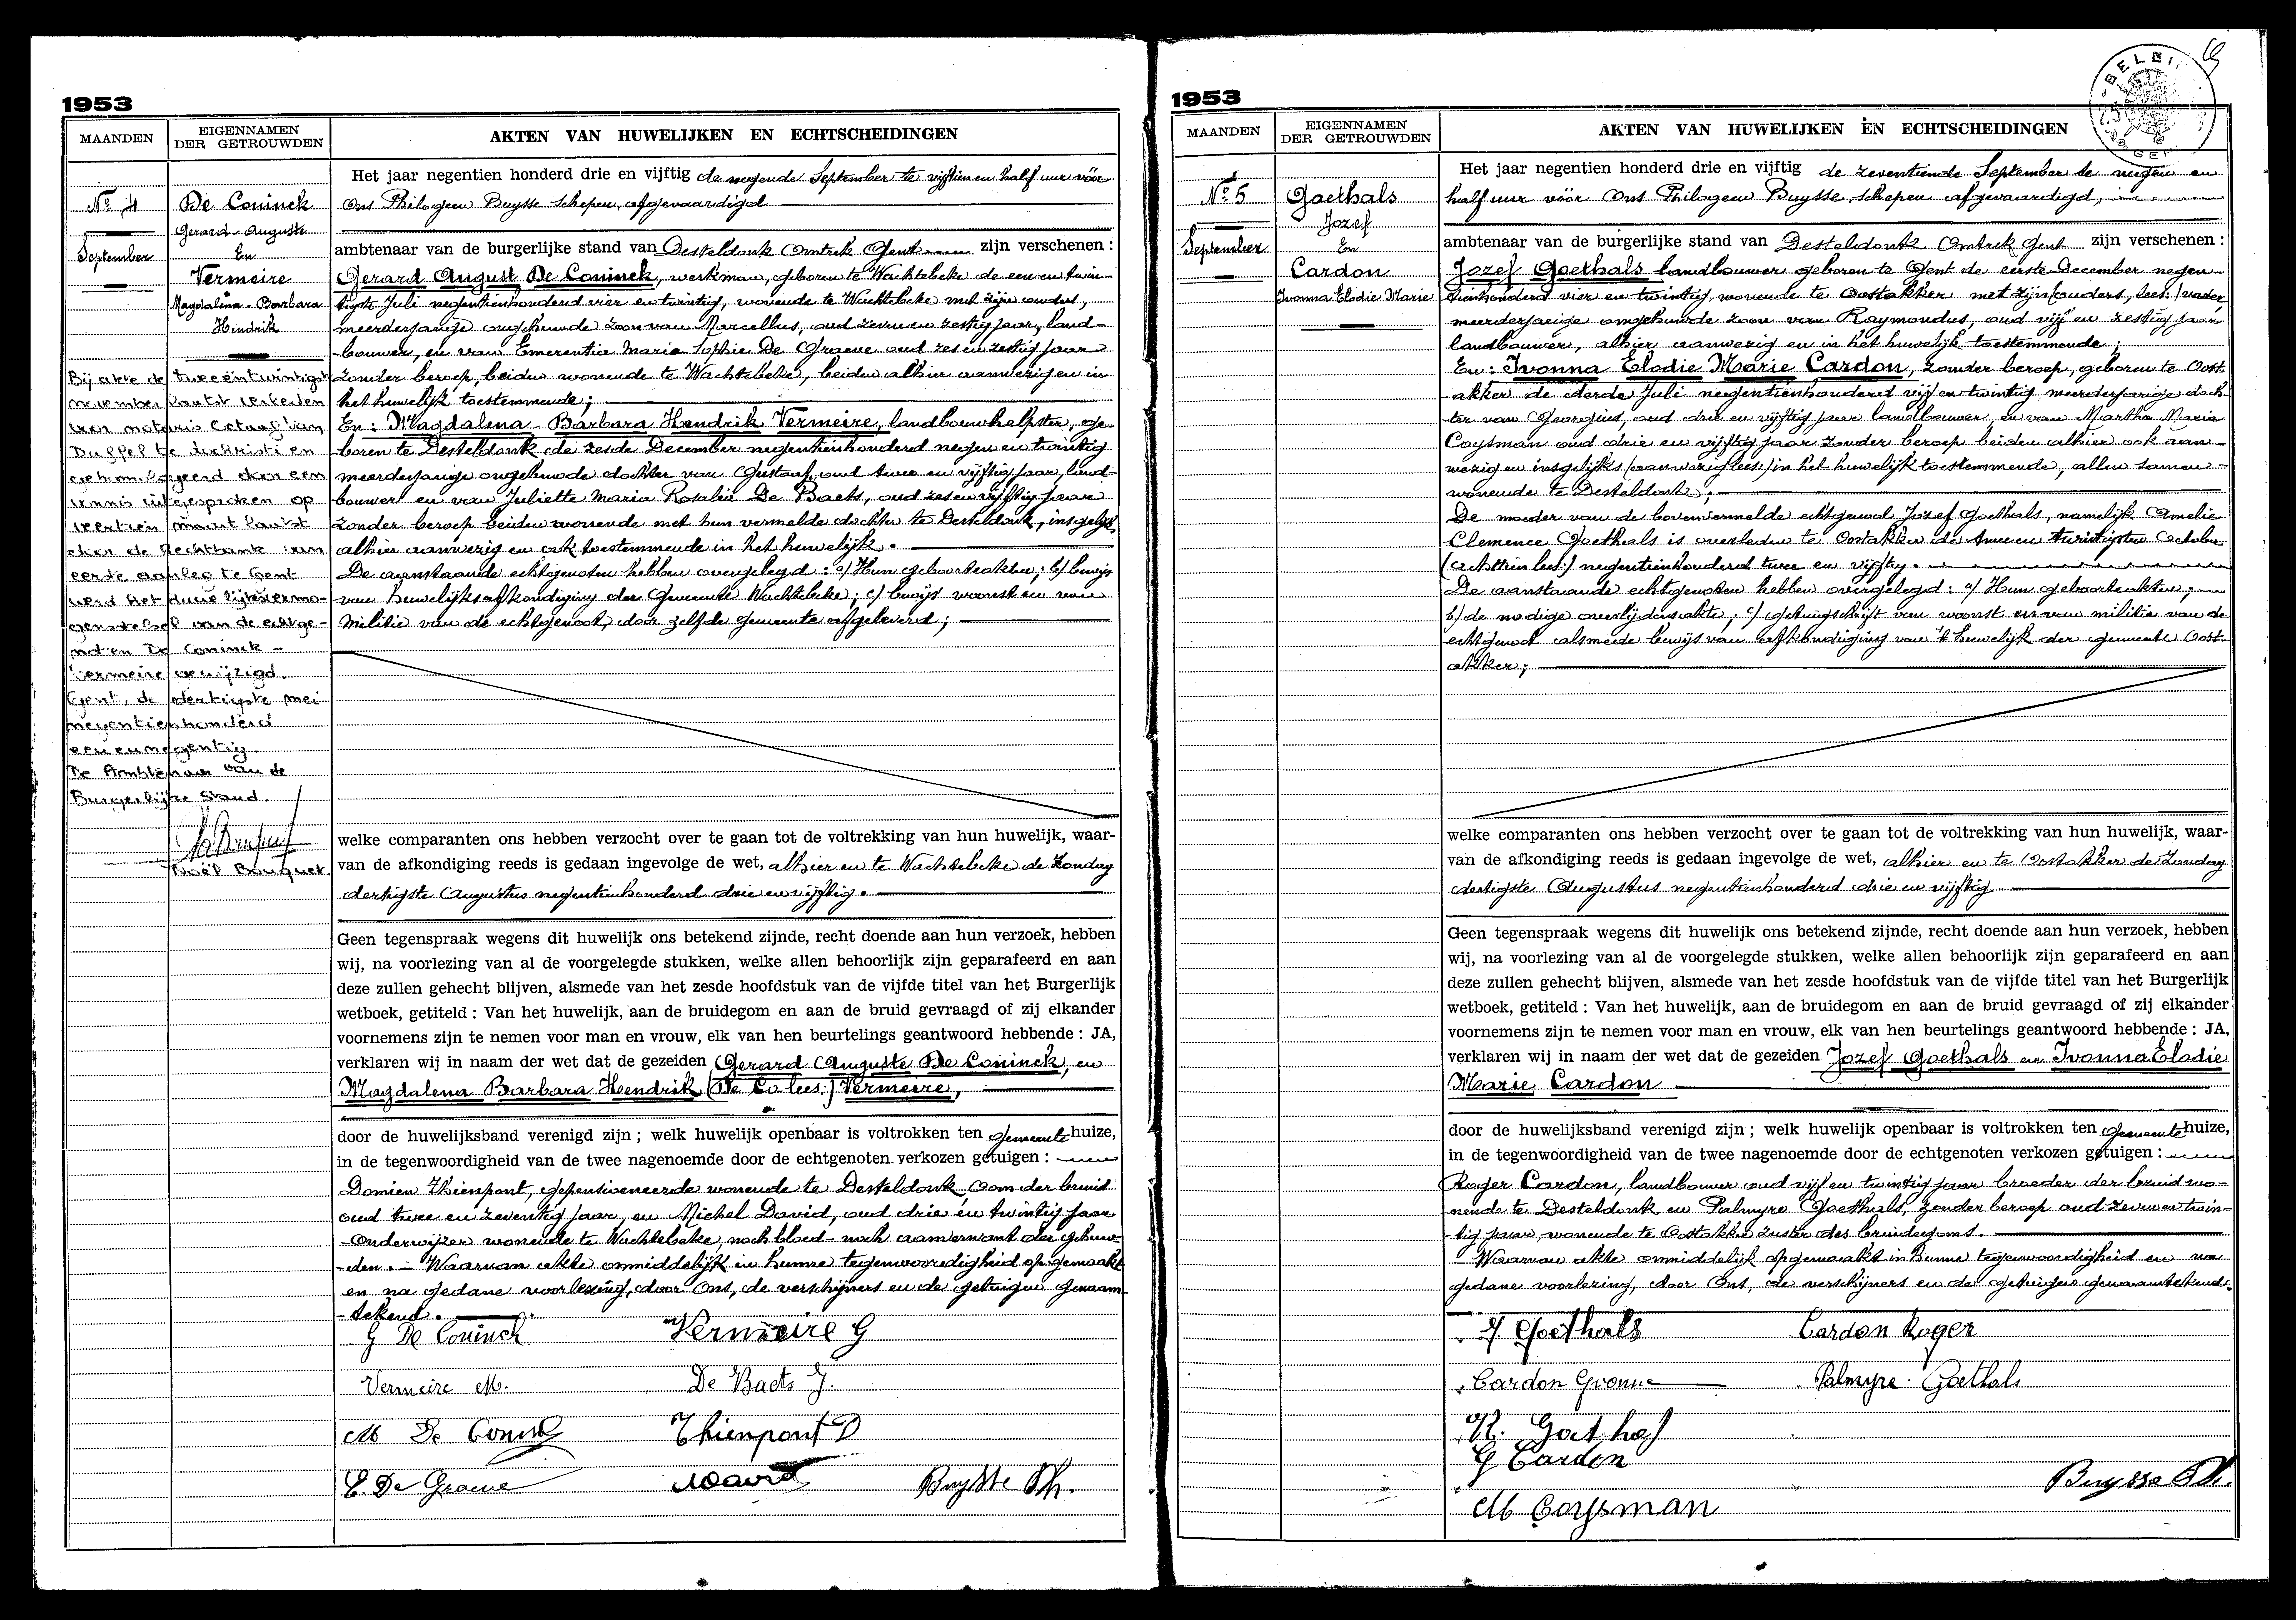 1953
MAANDEN
EIGENNAMEN
DER GETROUWDEN
AKTEN VAN HUWELIJKEN EN ECHTSCHEIDINGEN
No 4
September
De Coninck
Gerard-Auguste
En
Vermeire
Magdalena-Barbara
Hendrik
Bij akte de tweeëntwintigste
november laatst verleden
van
Duffel te
een
op
maart laatst
door de Rechtbank van
eerste aanleg te Gent
werd het huwelijksvermo-
gensstelsel van de echtge-
noten De Coninck -
Vermeire gewijzigd.
Gent, de dertigste mei
negentienhonderd
eenennegentig.
De Ambtenaar van de
Burgerlijke Stand.
Noël Bouquet
Het jaar negentien honderd drie en vijftig de negende September te vijftien en half uur vóór
Ons Philogeen Buysse schepen, afgevaardigd
ambtenaar van de burgerlijke stand van Desteldonk Omtrek Gent zijn verschenen :
Gerard August De Coninck, werkman, geboren te Wachtebeke de een en twin-
tigste Juli negentienhonderd vier en twintig, wonende te Wachtebeke met zijn ouders,
meerderjarige ongehuwde zoon van Marcellus, oud zeven en zestig jaar, land-
bouwer, en van Emerentia Maria Sophie De Graeve oud zes en zestig jaar
zonder beroep, beiden wonende te Wachtebeke, beiden alhier aanwezig en in
het huwelijk toestemmende;
En: Magdalena - Barbara Hendrik Vermeire, landbouwhelpster, ge-
boren te Desteldonk de zesde December negentienhonderd negen en twintig
meerderjarige ongehuwde dochter van Gustaaf, oud twee en vijftig jaar, land-
bouwer en van Juliette Maria Rosalie De Baets, oud zes en vijftig jaar
zonder beroep beiden wonende met hun vermelde dochter te Desteldonk, insgelijks
alhier aanwezig en ook toestemmende in het huwelijk.
De aanstaande echtgenoten hebben overgelegd: a) Hun geboorteakten; b) bewijs
van huwelijksafkondiging der Gemeente Wachtebeke; c) bewijs woonst en van
militie van de echtgenoot, door zelfde gemeente afgeleverd;
welke comparanten ons hebben verzocht over te gaan tot de voltrekking van hun huwelijk, waar-
van de afkondiging reeds is gedaan ingevolge de wet, alhier en te Wachtebeke de Zondag
dertigste Augustus negentienhonderd drie en vijftig.
Geen tegenspraak wegens dit huwelijk ons betekend zijnde, recht doende aan hun verzoek, hebben
wij, na voorlezing van al de voorgelegde stukken, welke allen behoorlijk zijn geparafeerd en aan
deze zullen gehecht blijven, alsmede van het zesde hoofdstuk van de vijfde titel van het Burgerlijk
wetboek, getiteld : Van het huwelijk, aan de bruidegom en aan de bruid gevraagd of zij elkander
voornemens zijn te nemen voor man en vrouw, elk van hen beurtelings geantwoord hebbende : JA,
verklaren wij in naam der wet dat de gezeiden Gerard Auguste De Coninck, en
Magdalena Barbara Hendrik (De Co lees:) Vermeire,
door de huwelijksband verenigd zijn ; welk huwelijk openbaar is voltrokken ten gemeentehuize,
in de tegenwoordigheid van de twee nagenoemde door de echtgenoten verkozen getuigen :
Damien Thienpont, gepensioneerde wonende te Desteldonk oom der bruid
oud twee en zeventig jaar, en Michel David, oud drie en twintig jaar
Onderwijzer wonende te Wachtebeke, noch bloed- noch aanverwant der gehuw-
-den. - Waarvan akte onmiddelijk in hunne tegenwoordigheid opgemaakt
en na gedane voorlezing, door Ons, de verschijners en de getuigen genaam-
-tekend.
G De Coninck Vermeire G
Vermeire M. De Baets J.
M De Coninck Thienpont D
E. De Graeve David Buysse Ph.
1953
MAANDEN
EIGENNAMEN
DER GETROUWDEN
AKTEN VAN HUWELIJKEN EN ECHTSCHEIDINGEN
BELGI
No 5
September
Goethals
Jozef
En
Cardon
Ivonna Elodie Marie
Het jaar negentien honderd drie en vijftig de zeventiende September te negen en
half uur vóór Ons Philogeen Buysse, schepen afgevaardigd,
ambtenaar van de burgerlijke stand van Desteldonk Omtrek Gent zijn verschenen :
Jozef Goethals landbouwer geboren te Gent de eerste December negen-
tienhonderd vier en twintig, wonende te Oostakker met zijn (ouders, lees:) vader
meerderjarige ongehuwde zoon van Raymondus, oud vijf en zestig jaar
landbouwer, alhier aanwezig en in het huwelijk toestemmende;
En: Ivonna Elodie Marie Cardon, zonder beroep, geboren te Oost-
-akker de derde Juli negentienhonderd vijf en twintig meerderjarige doch-
ter van Georgius, oud drie en vijftig jaar landbouwer, en van Martha Maria
Coysman oud drie en vijftig jaar zonder beroep beiden alhier ook aan-
wezig en insgelijks (aanwezig lees:) in het huwelijk toestemmende, allen samen-
wonende te Desteldonk.
De moeder van de bovenvermelde echtgenoot Jozef Goethals, namelijk Amelie
Clemence Goethals is overleden te Oostakker de twee en twintigsten October
(achttien lees:) negentienhonderd twee en vijftig.
De aanstaande echtgenoten hebben overgelegd: a) Hun geboorteakten;
b) de nodige overlijdensakte; c) getuigschrift van woonst en van militie van de
echtgenoot alsmede bewijs van afkondiging van 't huwelijk der gemeente Oost-
akker;
welke comparanten ons hebben verzocht over te gaan tot de voltrekking van hun huwelijk, waar-
van de afkondiging reeds is gedaan ingevolge de wet, alhier en te Oostakker de Zondag
dertigste Augustus negentienhonderd drie en vijftig.
Geen tegenspraak wegens dit huwelijk ons betekend zijnde, recht doende aan hun verzoek, hebben
wij, na voorlezing van al de voorgelegde stukken, welke allen behoorlijk zijn geparafeerd en aan
deze zullen gehecht blijven, alsmede van het zesde hoofdstuk van de vijfde titel van het Burgerlijk
wetboek, getiteld : Van het huwelijk, aan de bruidegom en aan de bruid gevraagd of zij elkander
voornemens zijn te nemen voor man en vrouw, elk van hen beurtelings geantwoord hebbende : JA,
verklaren wij in naam der wet dat de gezeiden Jozef Goethals en Ivonna Elodie
Marie Cardon
door de huwelijksband verenigd zijn ; welk huwelijk openbaar is voltrokken ten gemeentehuize,
in de tegenwoordigheid van de twee nagenoemde door de echtgenoten verkozen getuigen :
Roger Cardon, landbouwer oud vijf en twintig jaar broeder der bruid wo-
nende te Desteldonk en Palmyre Goethals, zonder beroep oud zeven en twin-
tig jaar, wonende te Oostakker zuster des bruidegoms.
Waarvan akte onmiddelijk opgemaakt in hunne tegenwoordigheid en na
gedane voorlezing, door Ons, de verschijners en de getuigen genaamtekend.
J Goethals Cardon Roger
Cardon Yvonne Palmyre Goethals
R. Goethals
G Cardon
Buysse Ph.
M Coysman